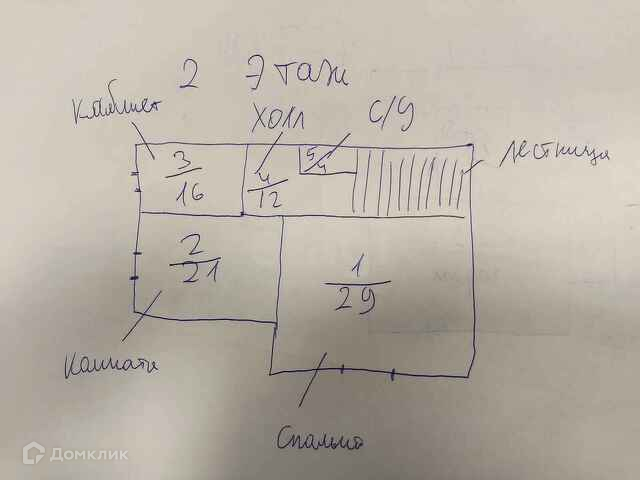 2 Этаж
Кабинет
ХОЛЛ
С/У
лестница
3/16
4/12
5/4
2/21
1/29
Комната
Спальня
Домклик